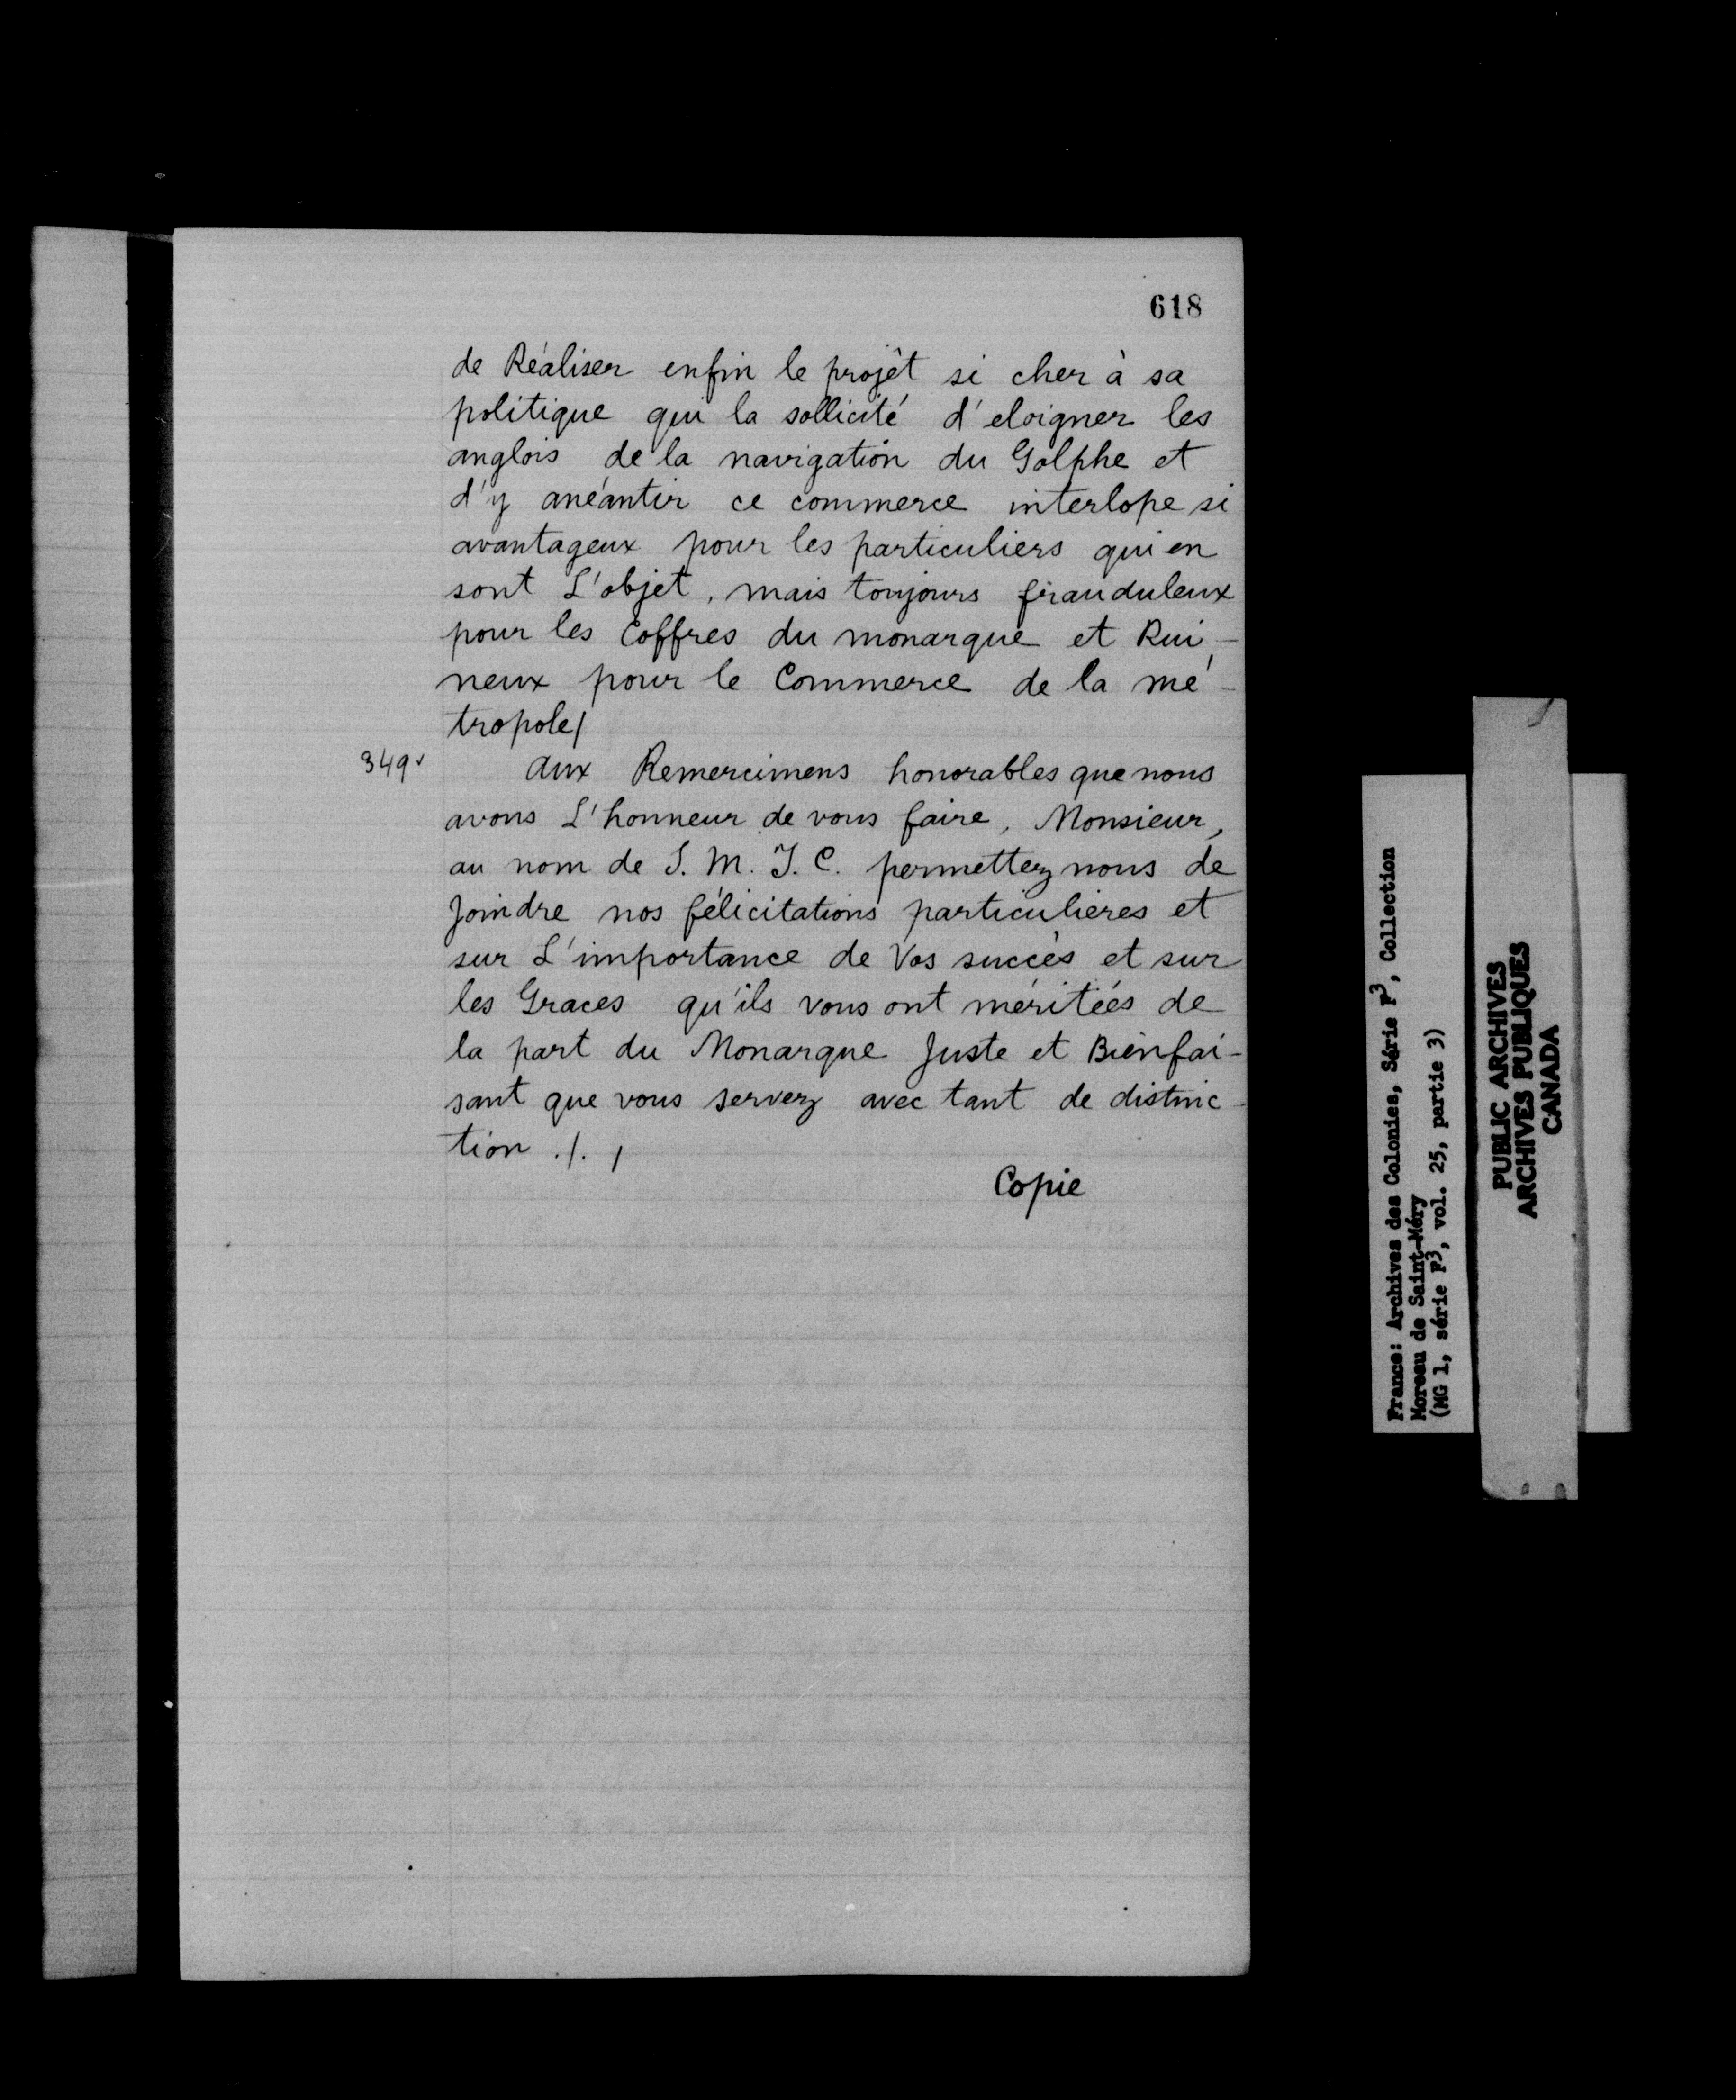 618
de Réaliser enfin le projêt si cher à sa
politique qui la sollicité d'eloigner les
anglois de la navigation du Golphe et
d'y anéantir ce commerce interlope si
avantageux pour les particuliers qui en
sont L'objet, mais toujours frauduleux
pour les Coffres du monarque et Rui-
neux pour le Commerce de la mé-
tropole/
349v
aux Remercimens honorables que nous
avons L'honneur de vous faire, Monsieur,
au nom de S. M. T. C. permettez nous de
Joindre nos félicitations particulieres et
sur L'importance de Vos succès et sur
les Graces qu'ils vous ont méritées de
la part du Monarque Juste et Bienfai-
sant que vous servez avec tant de distinc-
tion ./. /
Copie
France: Archives des Colonies, Série F3, Collection
Moreau de Saint-Méry
(MG 1, série F3, vol. 25, partie 3)
PUBLIC ARCHIVES
ARCHIVES PUBLIQUES
CANADA